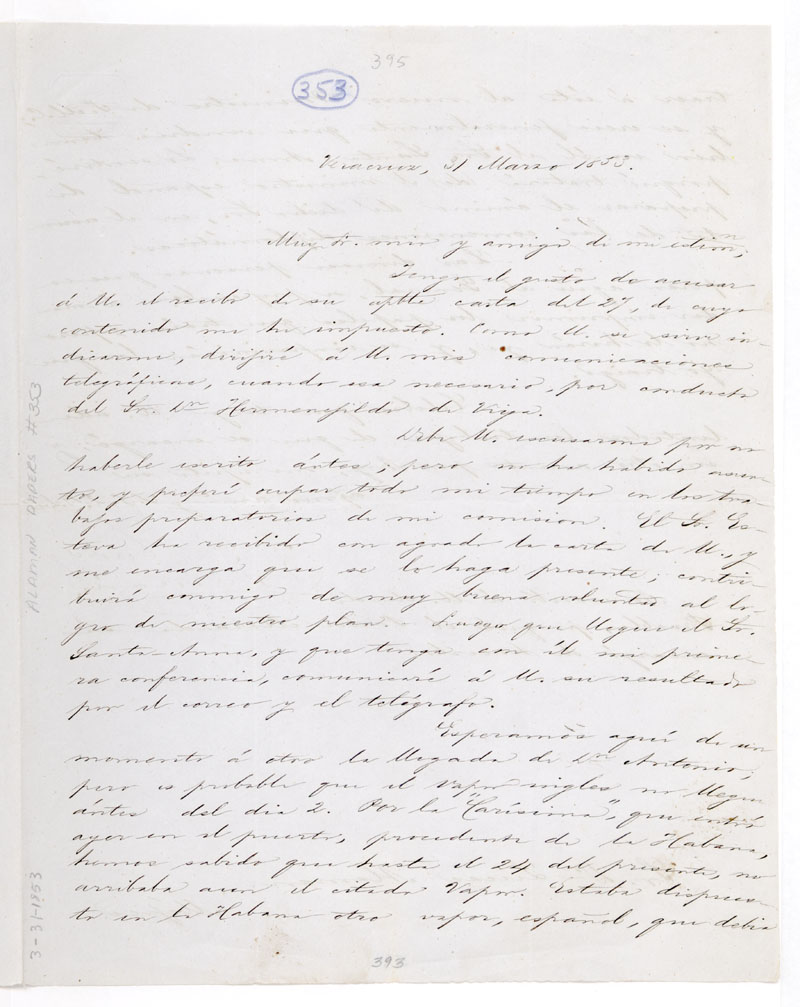 395
353
Veracruz, 31 Marzo 1853.
Muy Sr. mio y amigo de mi estimn,
Tengo el gusto de acusar
á U. el recibo de su aptble carta del 27, de cuyo
contenido me he impuesto. Como U. se sirve in-
dicarme, dirijiré á U. mis comunicaciones
telegráficas, cuando sea necesario, por conducto
del Sr. Dn Hermenejildo de Viya.
Debe U. escusarme por no
haberle escrito ántes; pero no ha habido asun-
to, y preferí ocupar todo mi tiempo en los tra-
bajos preparatorios de mi comision. El Sr. Es-
teva ha recibido con agrado la carta de U., y
me encarga que se lo haga presente; contri-
buirá conmigo de muy buena voluntad al lo-
gro de nuestro plan. Luego que llegue el Sr.
Santa-Anna, y que tenga con él mi prime-
ra conferencia, comunicaré á U. su resultado
por el correo y el telégrafo.
Esperamos aquí de un
momento á otro la llegada de Dn Antonio;
pero es probable que el vapor ingles no llegue
ántes del dia 2. Por la "Carísima", que entró
ayer en el puerto, procedente de la Habana,
hemos sabido que hasta el 24 del presente, no
arribaba aun el citado Vapor. Estaba dispues-
to en la Habana otro vapor, español, que debia
393
ALAMAN PAPERS #353
3-31-1853